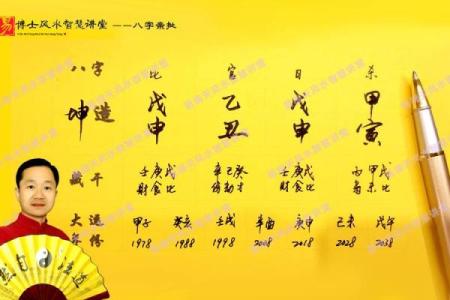 易 博士风水智慧讲堂 ——八字案批
八字 比 官 日 杀
坤造 戊申 乙丑 戊申 甲寅
藏干 壬庚戊 辛己癸 壬庚戊 丙甲戊
财食比 财食比
大运 甲子 癸亥 壬戌 辛酉 庚申 己未 戊午
年份 1978 1988 1998 2008 2018 2028 2038
然自法道